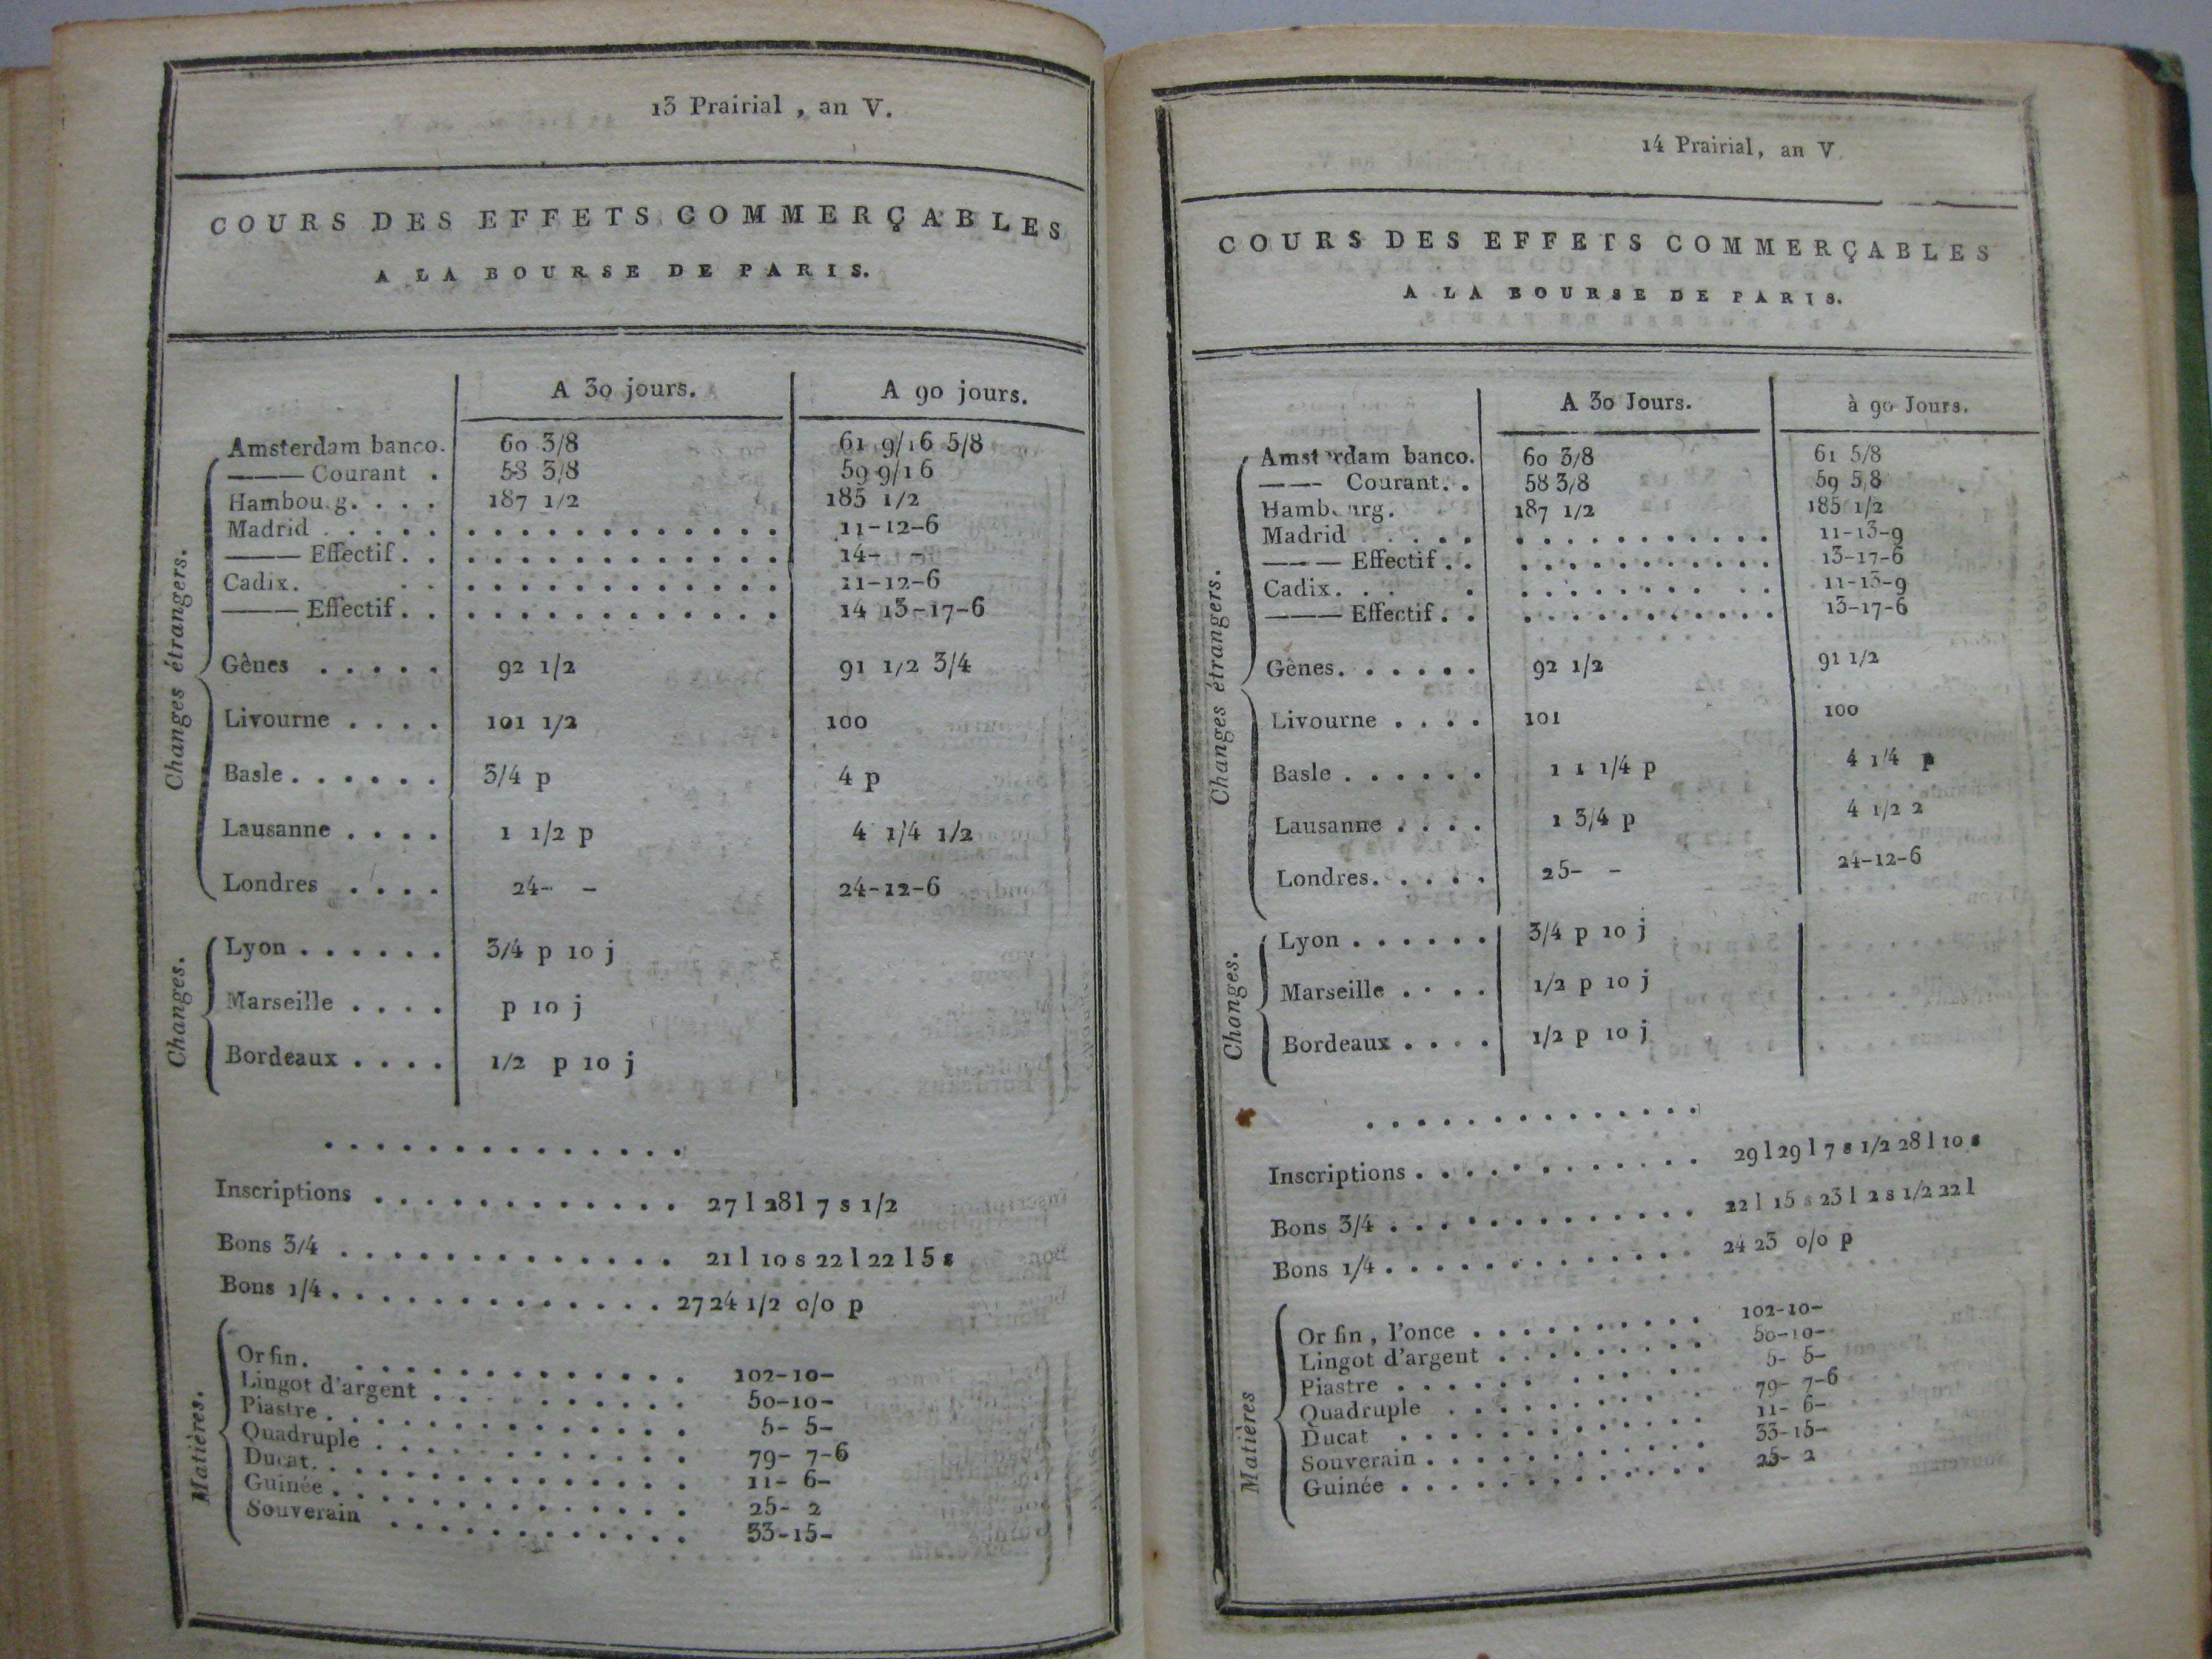 13 Prairial , an V.
COURS DES EFFETS COMMERÇABLES
A LA BOURSE DE PARIS.
A 30 jours. A 90 jours.
Changes étrangers.
Amsterdam banco. 60 3/8 61 9/16 5/8
——— Courant . 58 3/8 59 9/16
Hambou.g. . . . 187 1/2 185 1/2
Madrid . . . . . . . . . . . . . . . . . 11-12-6
——— Effectif . . . . . . . . . . . . . . . 14- -
Cadix. . . . . . . . . . . . . . . . 11-12-6
——— Effectif . . . . . . . . . . . . . . . 14 13-17-6
Gênes . . . . . 92 1/2 91 1/2 3/4
Livourne . . . . 101 1/2 100
Basle . . . . . . 3/4 p 4 p
Lausanne . . . . 1 1/2 p 4 1/4 1/2
Londres . . . . 24- - 24-12-6
Changes.
Lyon . . . . . . 3/4 p 10 j
Marseille . . . . p 10 j
Bordeaux . . . . 1/2 p 10 j
. . . . . . . . . . . . . . .
Inscriptions . . . . . . . . . . . . . 27 l 28 l 7 s 1/2
Bons 3/4 . . . . . . . . . . . . . . 21 l 10 s 22 l 22 l 5 s
Bons 1/4 . . . . . . . . . . . . . . 27 24 1/2 0/0 p
Matières.
Or fin. . . . . . . . . . . . . . . 102-10-
Lingot d'argent . . . . . . . . . . 50-10-
Piastre . . . . . . . . . . . . . . 5- 5-
Quadruple . . . . . . . . . . . . . 79- 7-6
Ducat. . . . . . . . . . . . . . . 11- 6-
Guinée . . . . . . . . . . . . . . 25- 2
Souverain . . . . . . . . . . . . 33-15-
14 Prairial, an V.
COURS DES EFFETS COMMERÇABLES
A LA BOURSE DE PARIS.
A 30 Jours. à 90 Jours.
Changes étrangers.
Amsterdam banco. 60 3/8 61 5/8
——— Courant. . 58 3/8 59 5/8
Hambourg. 187 1/2 185 1/2
Madrid . . . . . . . . . . . . . . . . 11-13-9
——— Effectif . . . . . . . . . . . . . 13-17-6
Cadix. . . . . . . . . . . . . . 11-13-9
——— Effectif . . . . . . . . . . . . . 13-17-6
Gênes. . . . . . 92 1/2 91 1/2
Livourne . . . . 101 100
Basle . . . . . . 1 1 1/4 p 4 1/4 p
Lausanne . . . . 1 3/4 p 4 1/2 2
Londres. . . . . 25- - 24-12-6
Changes.
Lyon . . . . . . 3/4 p 10 j
Marseille . . . . 1/2 p 10 j
Bordeaux . . . . 1/2 p 10 j
. . . . . . . . . . . . . .
Inscriptions . . . . . . . . . . . . 29 l 29 l 7 s 1/2 28 l 10 s
Bons 3/4 . . . . . . . . . . . . . 22 l 15 s 23 l 2 s 1/2 22 l
Bons 1/4 . . . . . . . . . . . . . 24 23 0/0 p
Matières
Or fin , l'once . . . . . . . . . . 102-10-
Lingot d'argent . . . . . . . . . 50-10-
Piastre . . . . . . . . . . . . . 5- 5-
Quadruple . . . . . . . . . . . 79- 7-6
Ducat . . . . . . . . . . . . . 11- 6-
Souverain . . . . . . . . . . . . 33-15-
Guinée . . . . . . . . . . . . . 25- 2